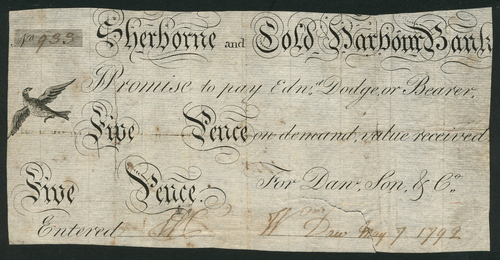 No 933 Sherborne and Cold Harbour Bank
I Promise to pay Edwd. Dodge, or Bearer,
Five Pence on demand, value received
Five Pence. For Daw, Son, & Co.
Entered W Daw May 7 1792